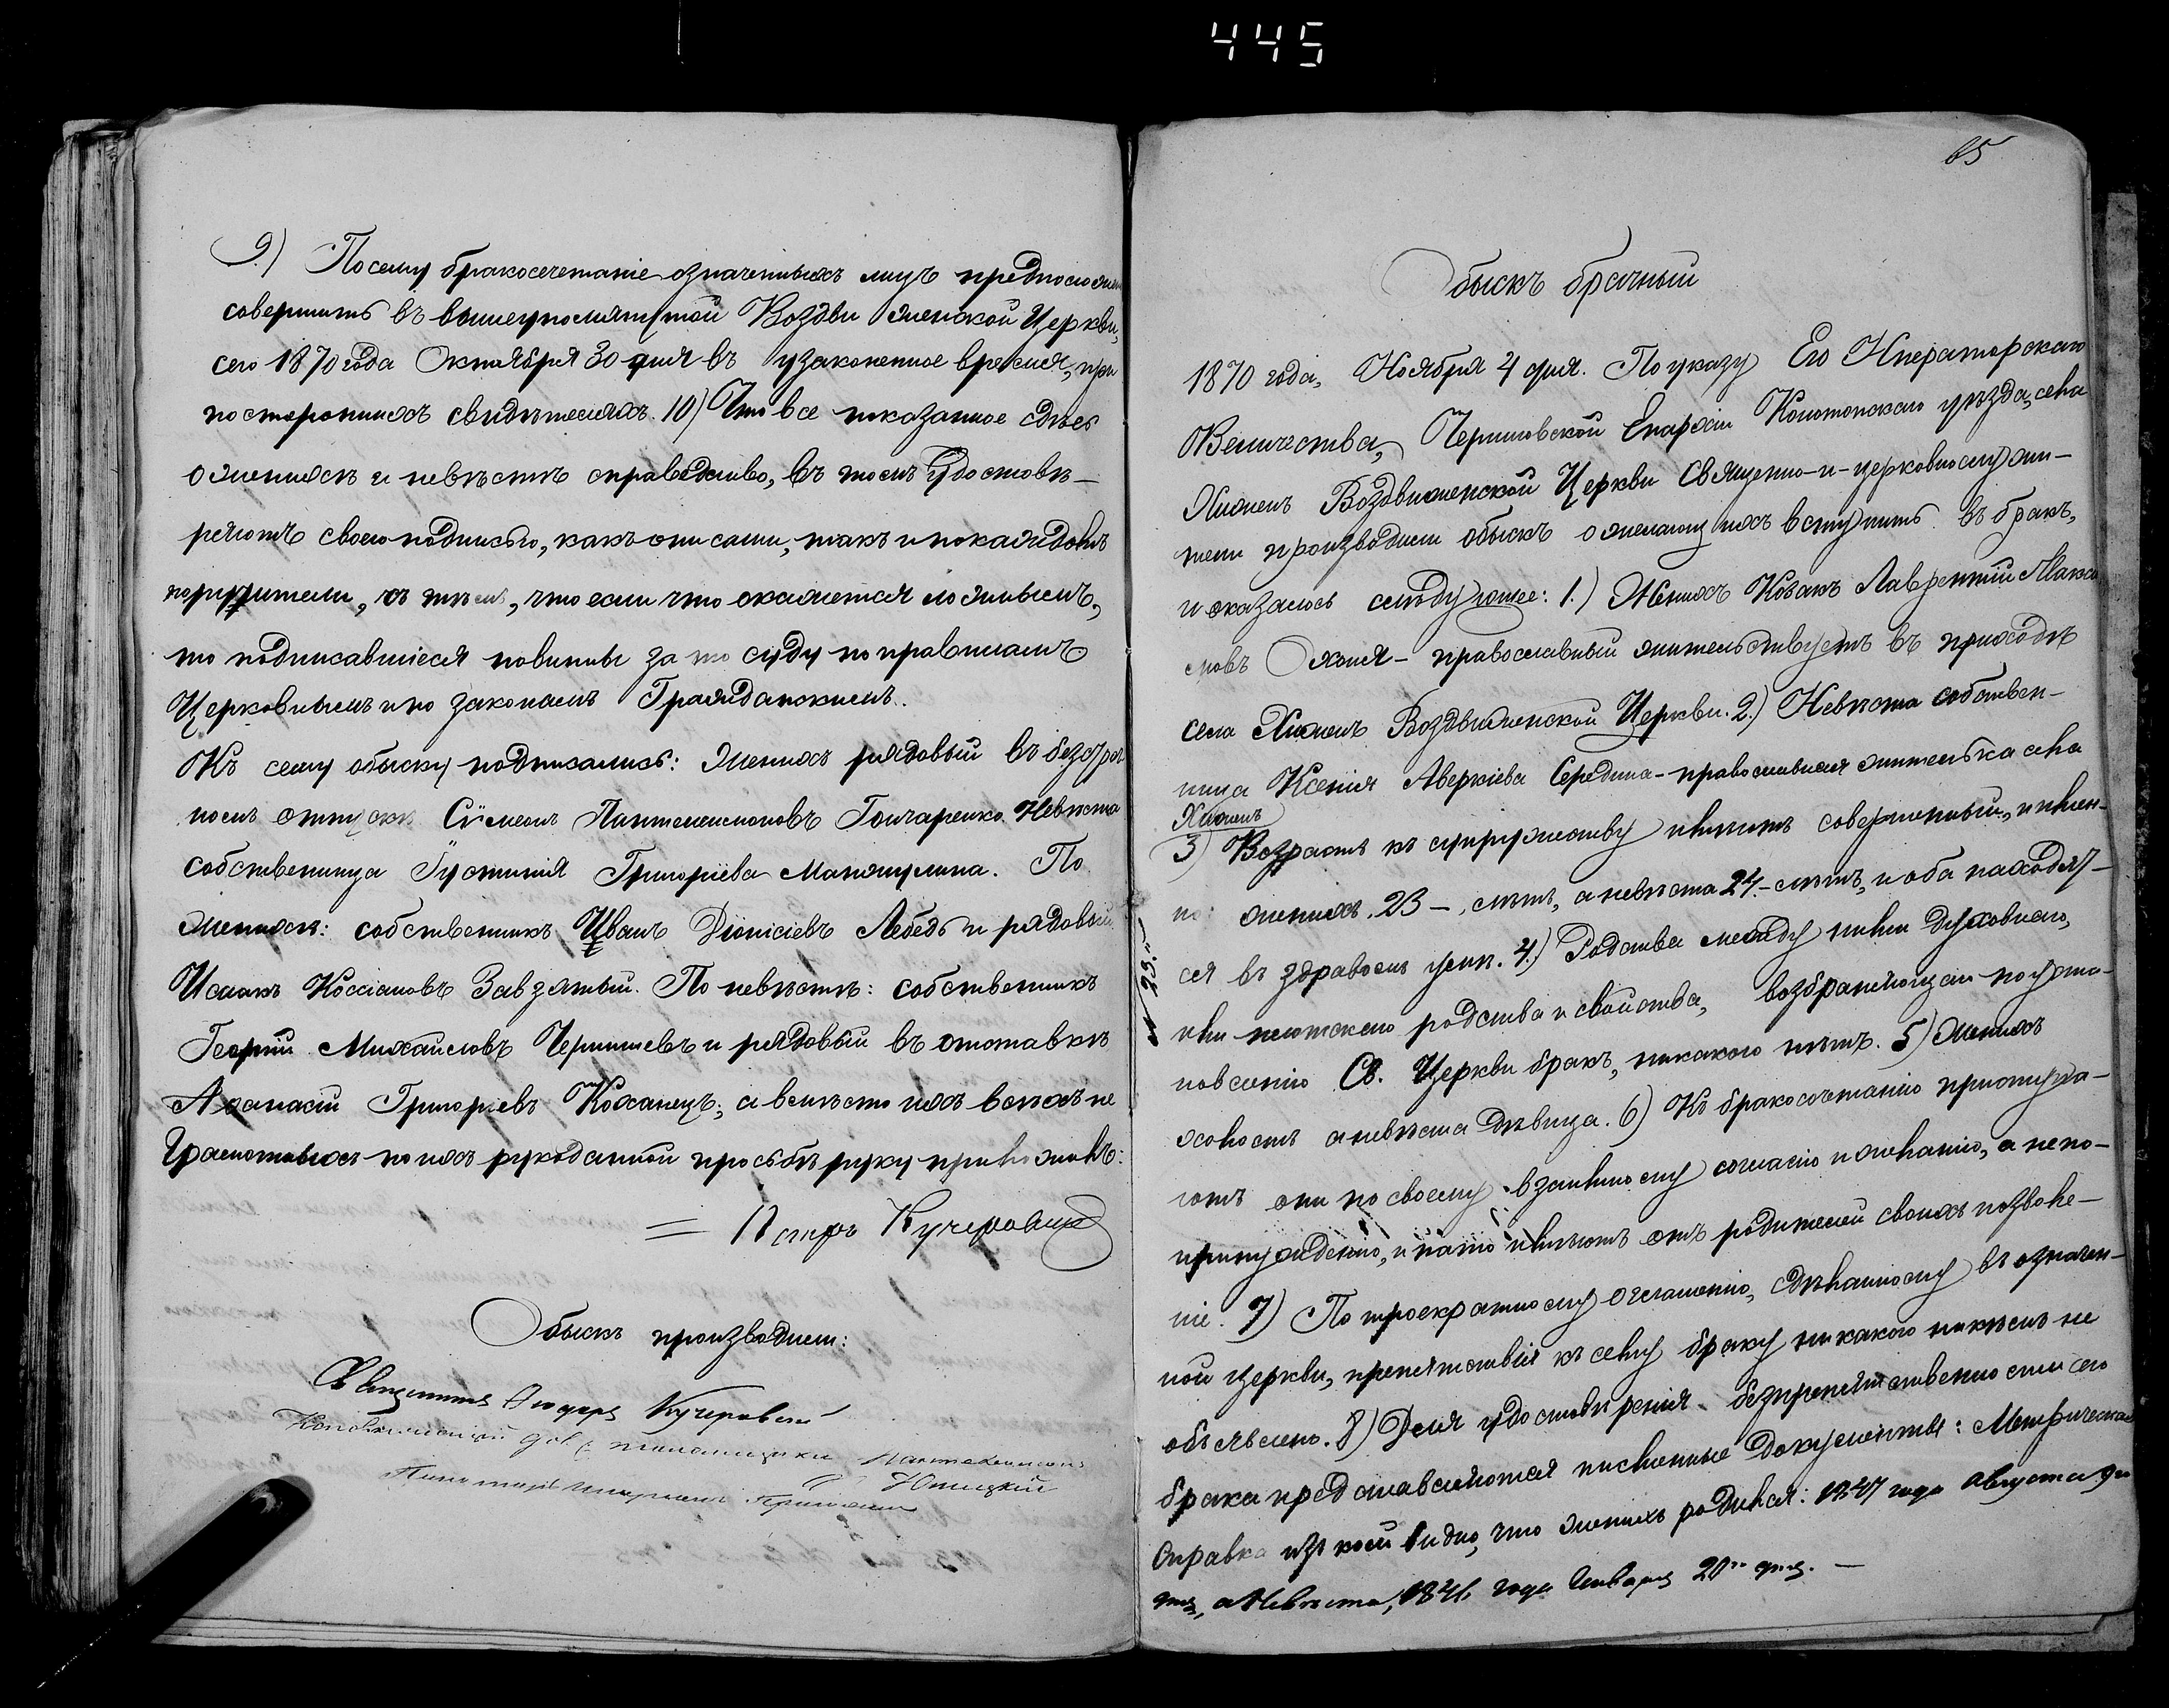 445
9.) Посему бракосочетаніе означенныхъ лицъ предположено
совершить въ вышеупомянутой Воздвиженской Церкви,
сего 1870 года Октября 30 дня въ узаконенное время, при
постороннихъ свидѣтеляхъ. 10) Что все показанное здѣсь
о женихѣ и невѣстѣ справедливо, въ томъ удостовѣ-
ряютъ своею подписью, какъ они сами, такъ и по каждомъ
поручители, съ тѣмъ, что если что окажется ложнымъ,
то подписавшіеся повинны за то суду по правиламъ
Церковнымъ и по законамъ Гражданскимъ.
Къ сему обыску подписались: женихъ рядовый въ безсроч
номъ отпуску Сѵмеонъ Пантелеимоновъ Гончаренко. Невѣста
собственница Іустинія Григоріева Манжулина. По
женихѣ: собственникъ Иванъ Діонисіевъ Лебедь и рядовый
Исаакъ Кассіановъ Завзятый. По невѣстѣ: собственникъ
Георгій Михаиловъ Чернишевъ и рядовый въ отставкѣ
Аѳанасій Григорьевъ Коханецъ; а вмѣсто ихъ всѣхъ не
грамотныхъ по ихъ рукоданной просьбѣ руку приложилъ:
= Петръ Кучеровскій
Обыскъ производили:
Священникъ Ѳеодоръ Кучеровскій
Пантелеимонъ
Юницкій
65
Обыскъ брачный
1870 года, Ноября 4 дня. По указу Его Императорскаго
Величества, Черниговской Епархіи Конотопскаго уѣзда, села
Хижекъ Воздвиженской Церкви Священно-и-церковнослужи-
тели производили обыскъ о желающихъ вступить въ бракъ,
и оказалось слѣдующее: 1.) Женихъ Козакъ Лаврентій Макси
мовъ Охоня - православный жительствуетъ въ приходѣ
села Хижекъ Воздвиженской Церкви. 2.) Невѣста собствен-
ница Ксенія Аверкіева Середина - православная жителька села
Хижекъ
3) Возрастъ къ супружеству имѣютъ совершенный, и имен-
но: женихъ 23 - лѣтъ, а невѣста 24 - лѣтъ, и оба находят-
ся въ здравомъ умѣ. 4.) Родства между ними духовнаго,
или плотскаго родства и свойства, возбраняющаго по уста-
новленію Св. Церкви бракъ, никакого нѣтъ. 5) Женихъ
холостъ а невѣста дѣвица. 6) Къ бракосочетанію приступа-
ютъ они по своему взаимному согласію и желанію, а не по-
принужденію, и на то имѣютъ отъ родителей своихъ позволе-
ніе. 7) По троекратному оглашенію, сдѣланному въ означен-
ной церкви, препятствія къ сему браку никакого никѣмъ не
объявлено. 8) Для удостовѣренія безпрепятственности сего
брака представляются письменные документы: Метрическая
Справка изъ коей видно, что женихъ родился: 1847 года Августа 9го
дня, а Невѣста, 1846 года Января 20го дня. —